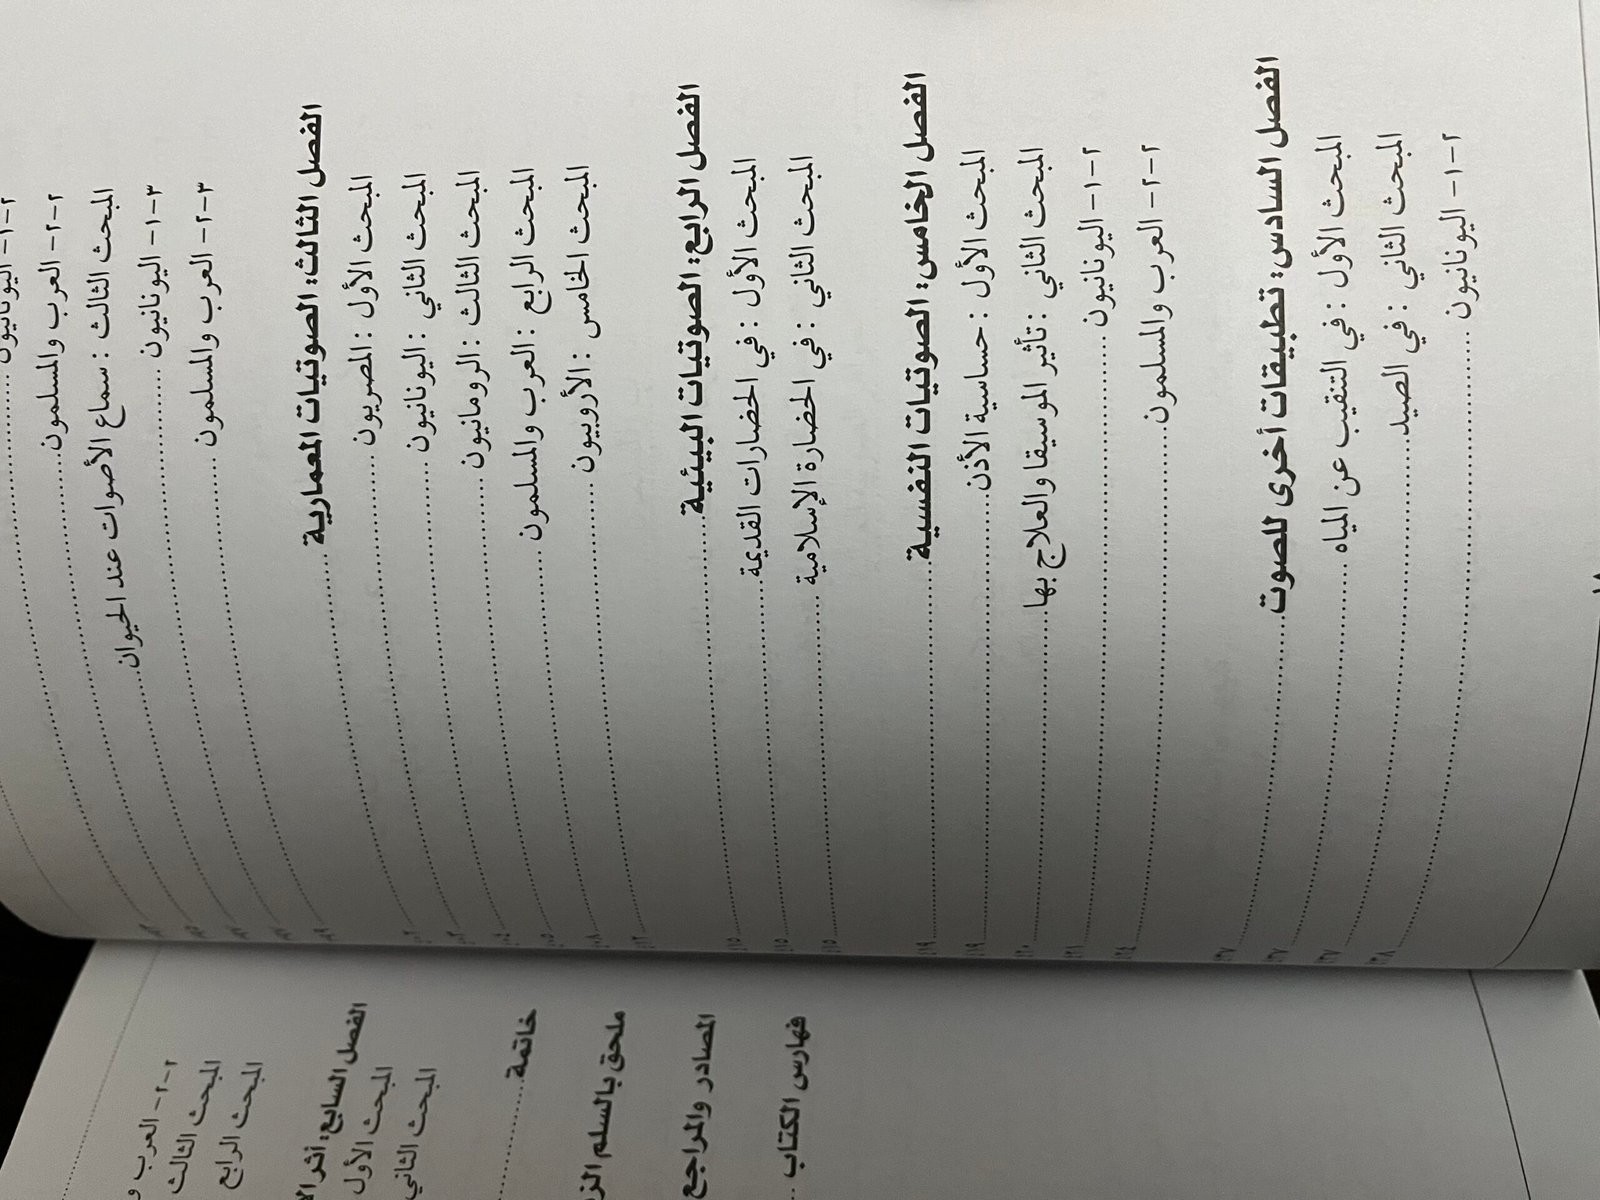 ٢-١- اليونانيون
٢-٢- العرب والمسلمون
المبحث الثالث : سماع الأصوات عند الحيوان
٣-١- اليونانيون
٣-٢- العرب والمسلمون
الفصل الثالث: الصوتيات المعمارية
المبحث الأول : المصريون
المبحث الثاني : اليونانيون
المبحث الثالث : الرومانيون
المبحث الرابع : العرب والمسلمون
المبحث الخامس : الأروبيون
الفصل الرابع: الصوتيات البيئية
المبحث الأول : في الحضارات القديمة
المبحث الثاني : في الحضارة الإسلامية
الفصل الخامس: الصوتيات النفسية
المبحث الأول : حساسية الأذن
المبحث الثاني : تأثير الموسيقا والعلاج بها
٢-١- اليونانيون
٢-٢- العرب والمسلمون
الفصل السادس: تطبيقات أخرى للصوت
المبحث الأول : في التنقيب عن المياه
المبحث الثاني : في الصيد
٢-١- اليونانيون
٢-٢- العرب و
المبحث الثالث
المبحث الرابع
الفصل السابع: أثر
المبحث الأول
المبحث الثاني
خاتمة
ملحق بالسلم
المصادر والمراجع
فهارس الكتاب